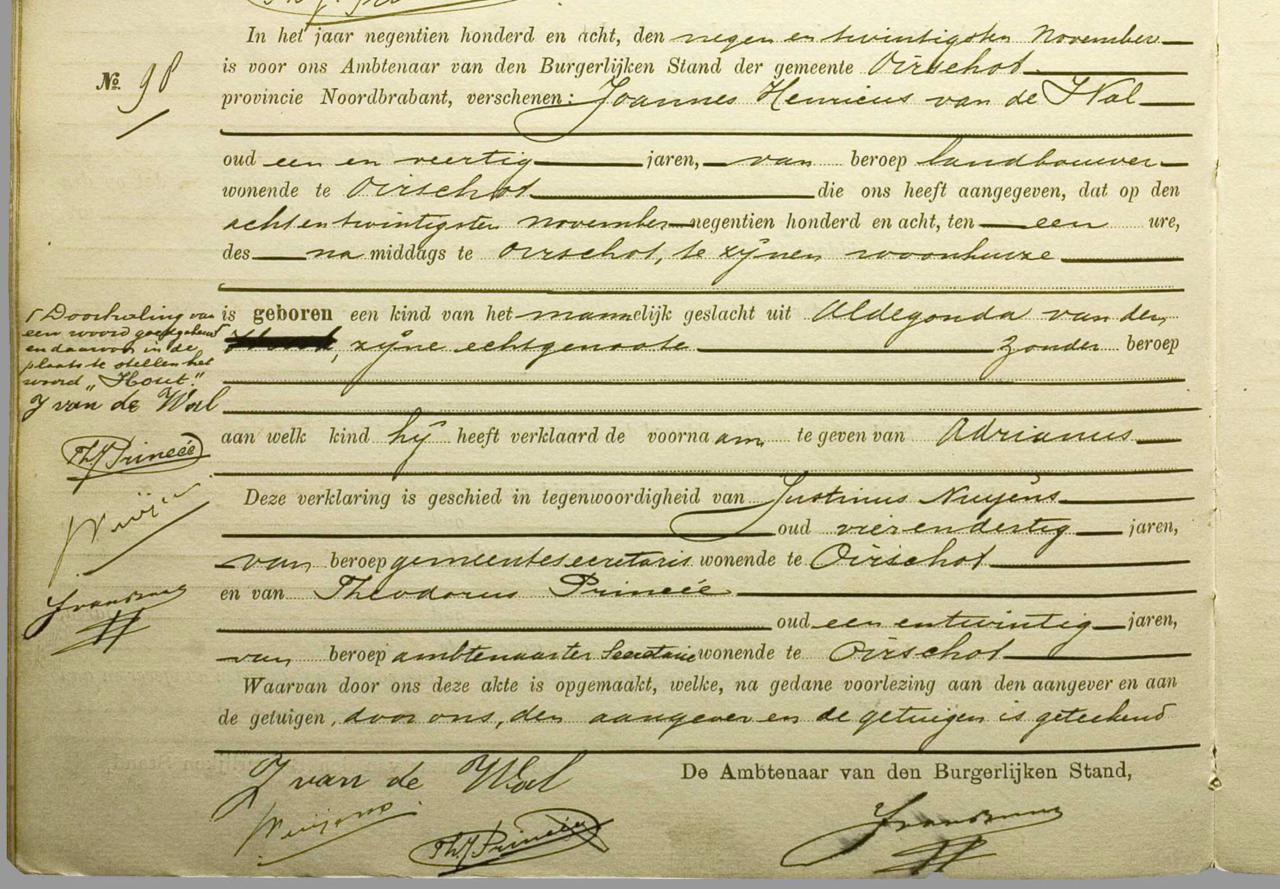 In het jaar negentien honderd en acht, den negen en twintigsten November
№ 98
is voor ons Ambtenaar van den Burgerlijken Stand der gemeente Oirschot
provincie Noordbrabant, verschenen: Joannes Henricus van de Wal
oud een en veertig jaren, van beroep landbouwer
wonende te Oirschot die ons heeft aangegeven, dat op den
acht en twintigsten november negentien honderd en acht, ten een ure,
des na middags te Oirschot, te zijnen woonhuize
is geboren een kind van het mannelijk geslacht uit Aldegonda van den
, zijne echtgenoote zonder beroep
Doorhaling van
een woord goedgekeurd
en daarvoor in de
plaats te stellen het
woord „Hout."
J van de Wal
Th. J. Princeé
aan welk kind hij heeft verklaard de voornaam te geven van Adrianus
Deze verklaring is geschied in tegenwoordigheid van Justinus Nuijens
oud vier en dertig jaren,
van beroep gemeentesecretaris wonende te Oirschot
en van Theodorus Princeé
oud een en twintig jaren,
van beroep ambtenaar ter Secretarie wonende te Oirschot
Waarvan door ons deze akte is opgemaakt, welke, na gedane voorlezing aan den aangever en aan
de getuigen, door ons, den aangever en de getuigen is geteekend
J van de Wal
De Ambtenaar van den Burgerlijken Stand,
Th. J. Princeé